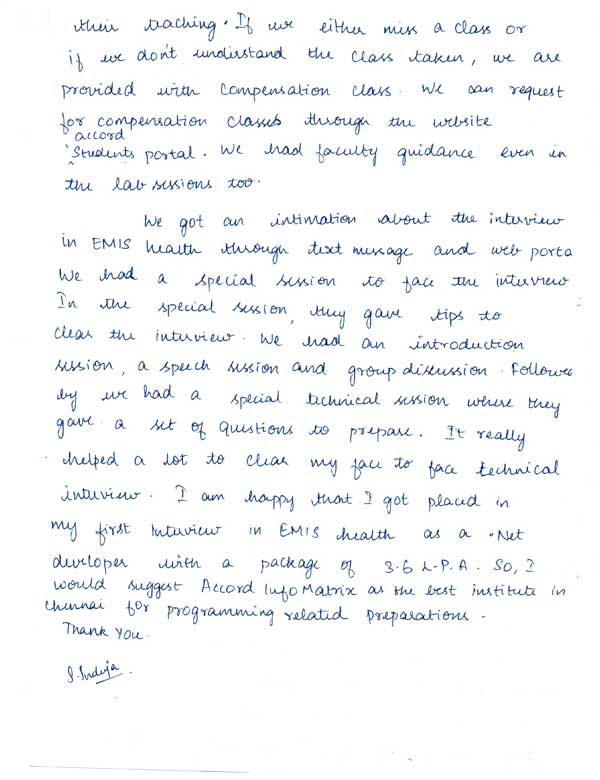 their teaching. If we either miss a class or
if we don't understand the class taken, we are
provided with compensation class. We can request
for compensation classes through the website
accord
'Students portal. We had faculty guidance even in
the lab sessions too.
We got an intimation about the interview
in EMIS health through text message and web porta
We had a special session to face the interview
In the special session, they gave tips to
clear the interview. We had an introduction
session, a speech session and group discussion. Followed
by we had a special technical session where they
gave a set of questions to prepare. It really
helped a lot to clear my face to face technical
interview. I am happy that I got placed in
my first Interview in EMIS health as a .Net
developer with a package of 3.6 L.P.A. So, I
would suggest Accord Info Matrix as the best institute in
Chennai for programming related preparations.
Thank you.
S. Induja.